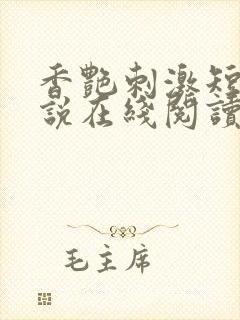 香艷刺激短
說在綫閱讀
毛主席